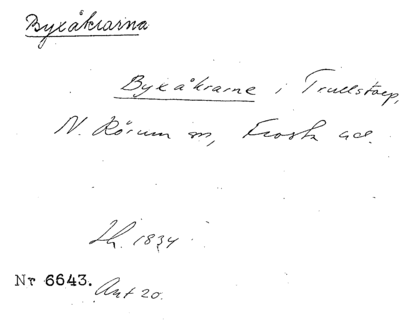 Byxåkrarna
Byxåkrarne i Trullstorp,
N. Rörum sn, Frosta hd.
Lh. 1834
Nr 6643. Akt 20.